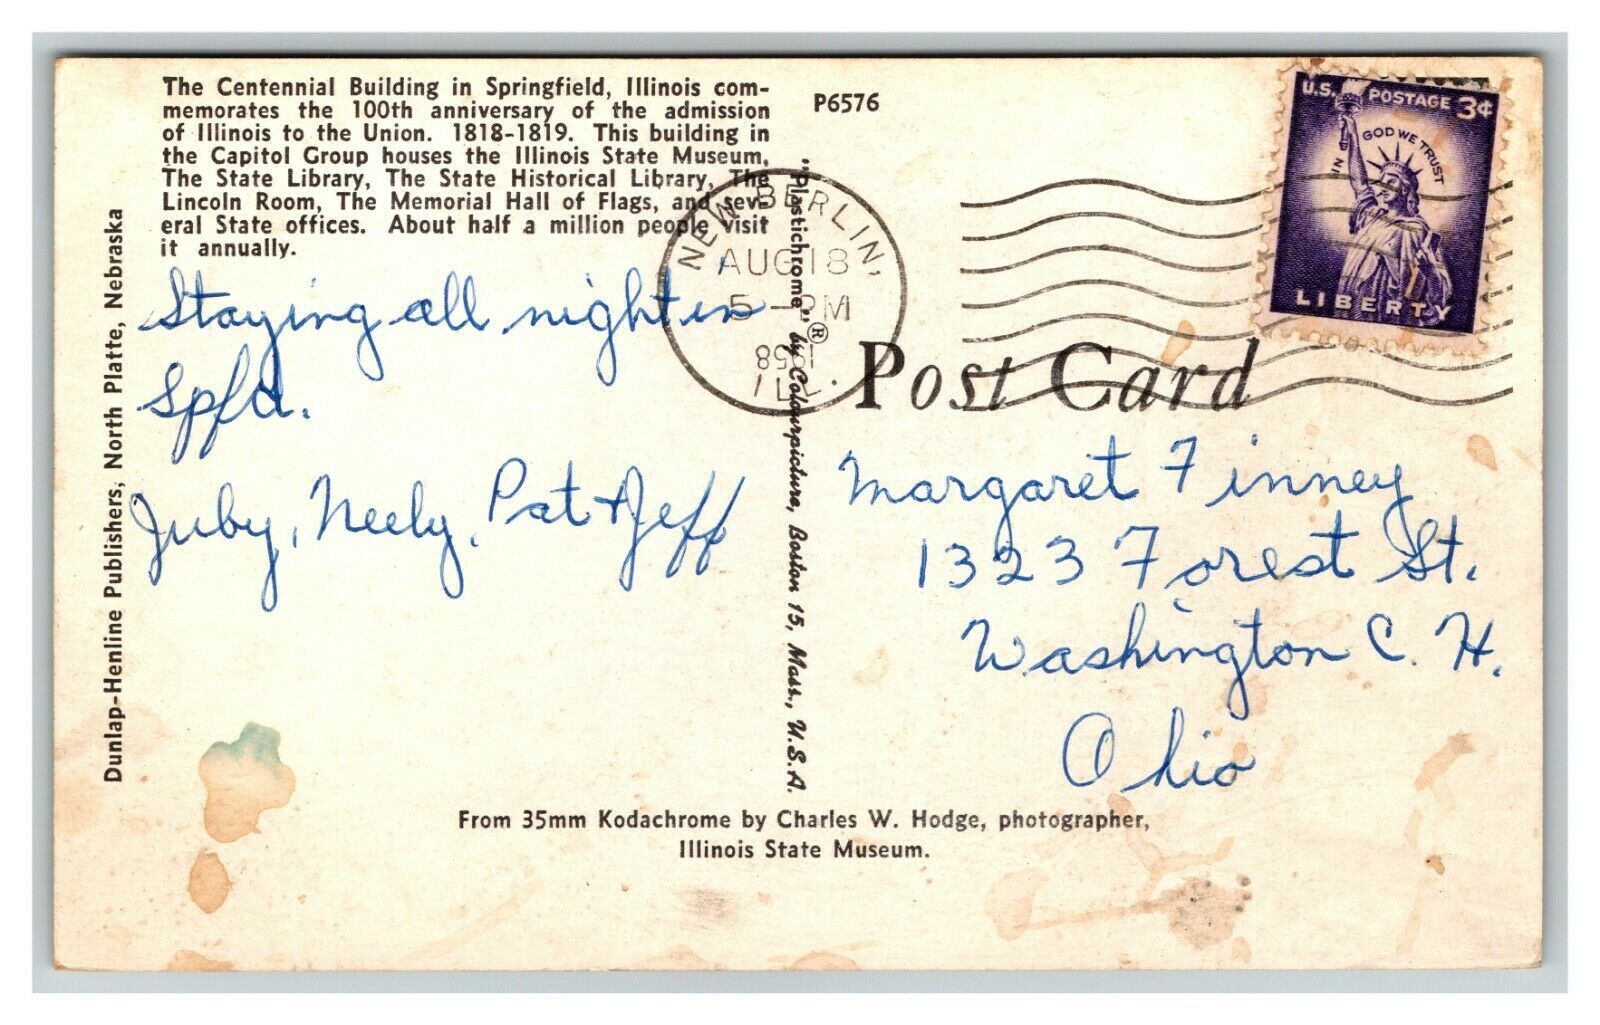 The Centennial Building in Springfield, Illinois com-
memorates the 100th anniversary of the admission
of Illinois to the Union. 1818-1819. This building in
the Capitol Group houses the Illinois State Museum,
The State Library, The State Historical Library, The
Lincoln Room, The Memorial Hall of Flags, and sev-
eral State offices. About half a million people visit
it annually.
P6576
U.S. POSTAGE 3¢
IN GOD WE TRUST
LIBERTY
NEW BERLIN,
AUG 18
5 -PM
1958
ILL.
Post Card
Staying all night in
Spfd.
Juby, Neely, Pat & Jeff
Margaret Finney
1323 Forest St.
Washington C. H.
Ohio
Dunlap-Henline Publishers, North Platte, Nebraska
"Plastichrome"® by Colourpicture, Boston 15, Mass., U.S.A.
From 35mm Kodachrome by Charles W. Hodge, photographer,
Illinois State Museum.